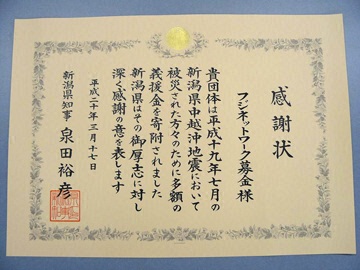 感謝状
フジネットワーク募金様
貴団体は平成十九年七月の
新潟県中越沖地震において
被災された方々のために多額の
義援金を寄附されました
新潟県はその御厚志に対し
深く感謝の意を表します
平成二十年三月十七日
新潟県知事 泉田裕彦